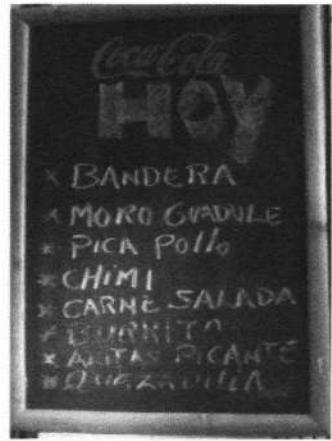 Coca-Cola
HOY
× BANDERA
× MORO GUADULE
× PICA POllo
× CHIMI
× CARNE SALADA
× BURRITO
× ALITAS PICANTE
× QUEZADILLA